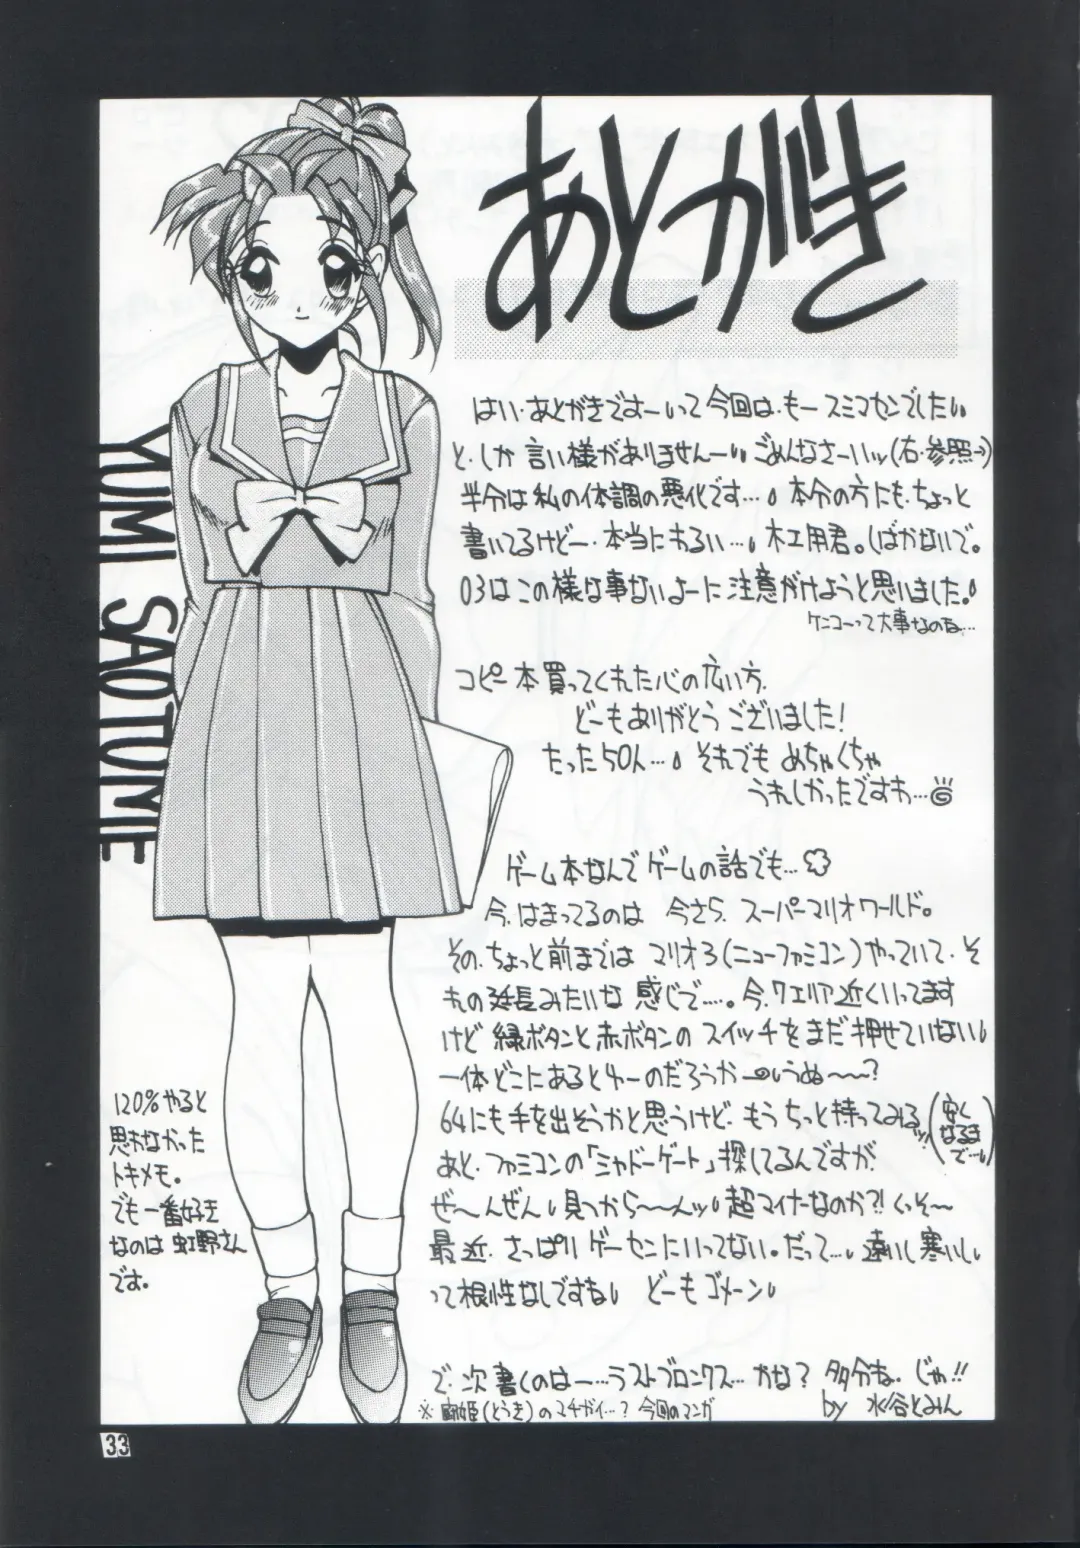 あとがき
はい・あとがきですーいって今回は・もー スミマセンでした
と・しか 言い様がありませんー ごめんなさーいッ(右・参照→)
半分は 私の体調の悪化です… 本分の方にも・ちょっと
書いてるけどー・本当にまるい… 木工用君。しばかないで。
03は この様な事ないよーに 注意がけようと思いました。
ケンコーって大事なのね…
コピー本買ってくれた心の広い方、
どーもありがとう ございました!
たった50人… それでも めちゃくちゃ
うれしかったですわ…
ゲーム本なんで ゲームの話でも…
今、はまってるのは 今さら、スーパーマリオワールド。
その、ちょっと前までは マリオ3(ニューファミコン)やっていて、そ
れの延長みたいな 感じで…。今、7エリア近くいってます
けど 緑ボタンと赤ボタンの スイッチを まだ押せていない
一体どこにあるとゆーのだろうか うぬ〜〜?
64にも手を出そうかと思うけど、もうちっと持ってみるッ!!(安くなるまで…)
あと、ファミコンの「シャドーゲート」探してるんですが、
ぜ〜んぜん 見つから〜〜んッ 超マイナーなのか?! くっそ〜
最近、さっぱり ゲーセンにいってない。だって… 遠いし寒いし
って根性なしですね どーもゴメーン
で、次書くのはー…ラストブロンクス…かな? 多分ね。じゃ!!
※ 姫(とうき)のマチガイ…? 今回のマンガ
by 水谷とみん
YUMI SAOTOME
120%やると
思わなかった
トキメモ。
でも一番好き
なのは 虹野さん
です。
33